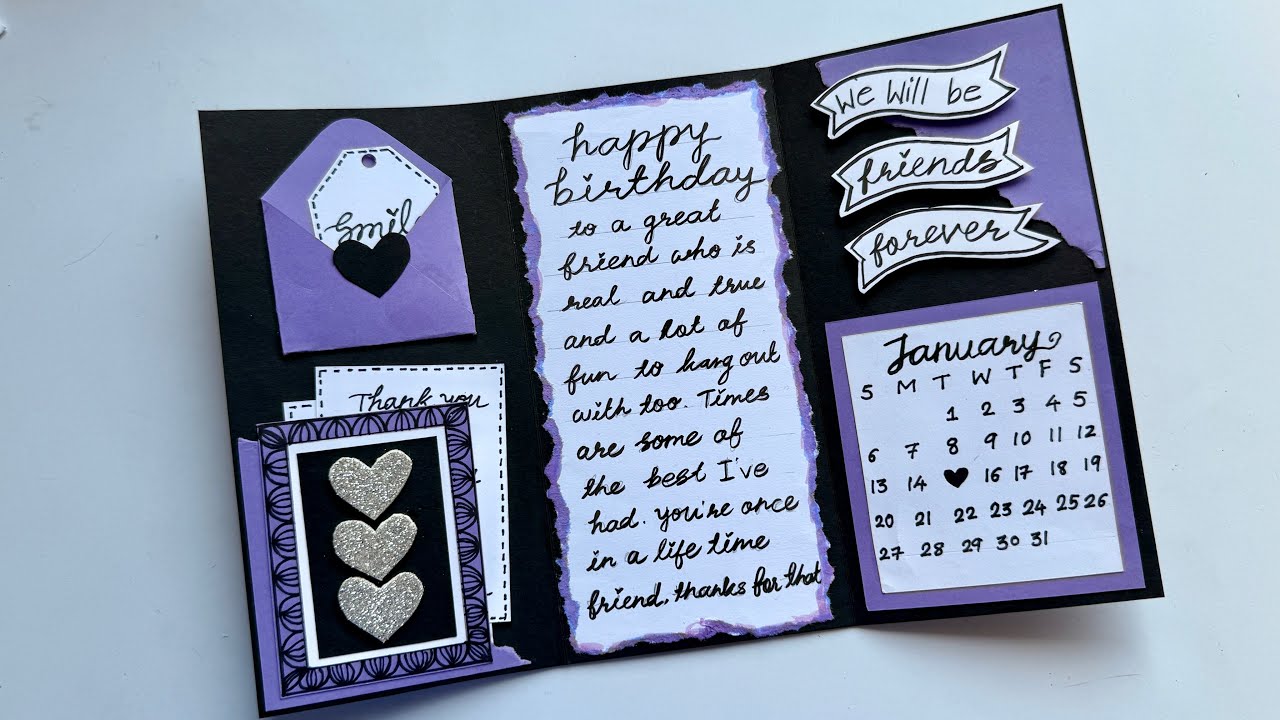 Smil
Thank you
happy
birthday
to a great
friend who is
real and true
and a lot of
fun to hang out
with too. Times
are some of
the best I've
had. you're once
in a life time
friend, thanks for that
We Will be
friends
forever
January
S M T W T F S
1 2 3 4 5
6 7 8 9 10 11 12
13 14 16 17 18 19
20 21 22 23 24 25 26
27 28 29 30 31